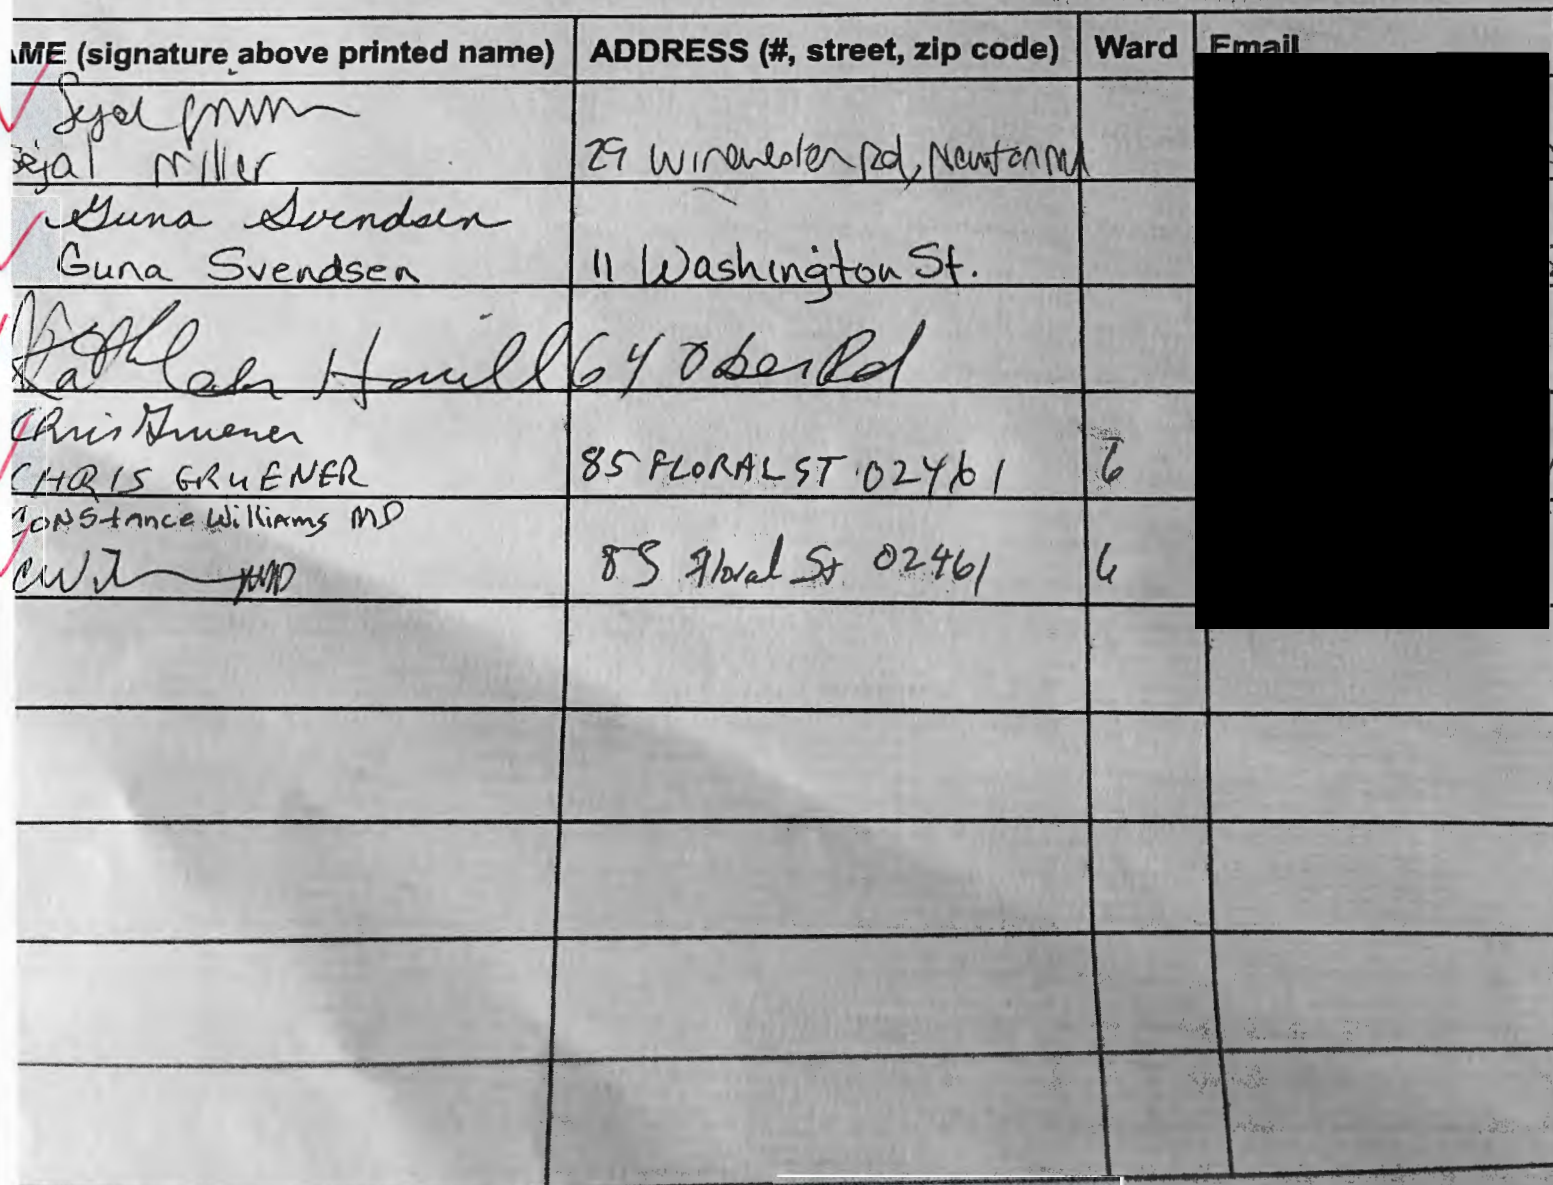 AME (signature above printed name) ADDRESS (#, street, zip code) Ward Email
Sejal
Sejal Miller 29 Winchester Rd, Newton MA
Guna Svendsen
Guna Svendsen 11 Washington St.
Kathleen 64 Ober Rd
Chris Gruener
CHRIS GRUENER 85 FLORAL ST 02461 6
Constance Williams MD
85 Floral St 02461 6